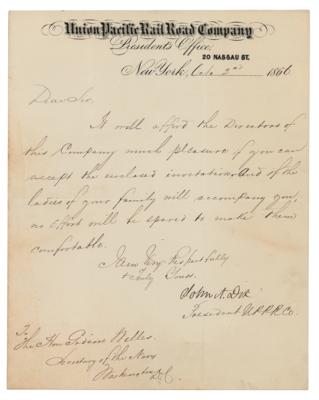 Union Pacific Rail Road Company
Presidents Office,
20 NASSAU ST.
New York, Octo 2nd 1866
Dear Sir.
It will afford the Directors of
this Company much pleasure if you can
accept the enclosed invitation, and if the
ladies of your family will accompany you,
no effort will be spared to make them
comfortable.
I am Very Respectfully
& Truly Yours.
John A. Dix
President U.P.R.R.Co.
To
The Hon Gideon Welles
Secretary of the Navy
Washington D.C.